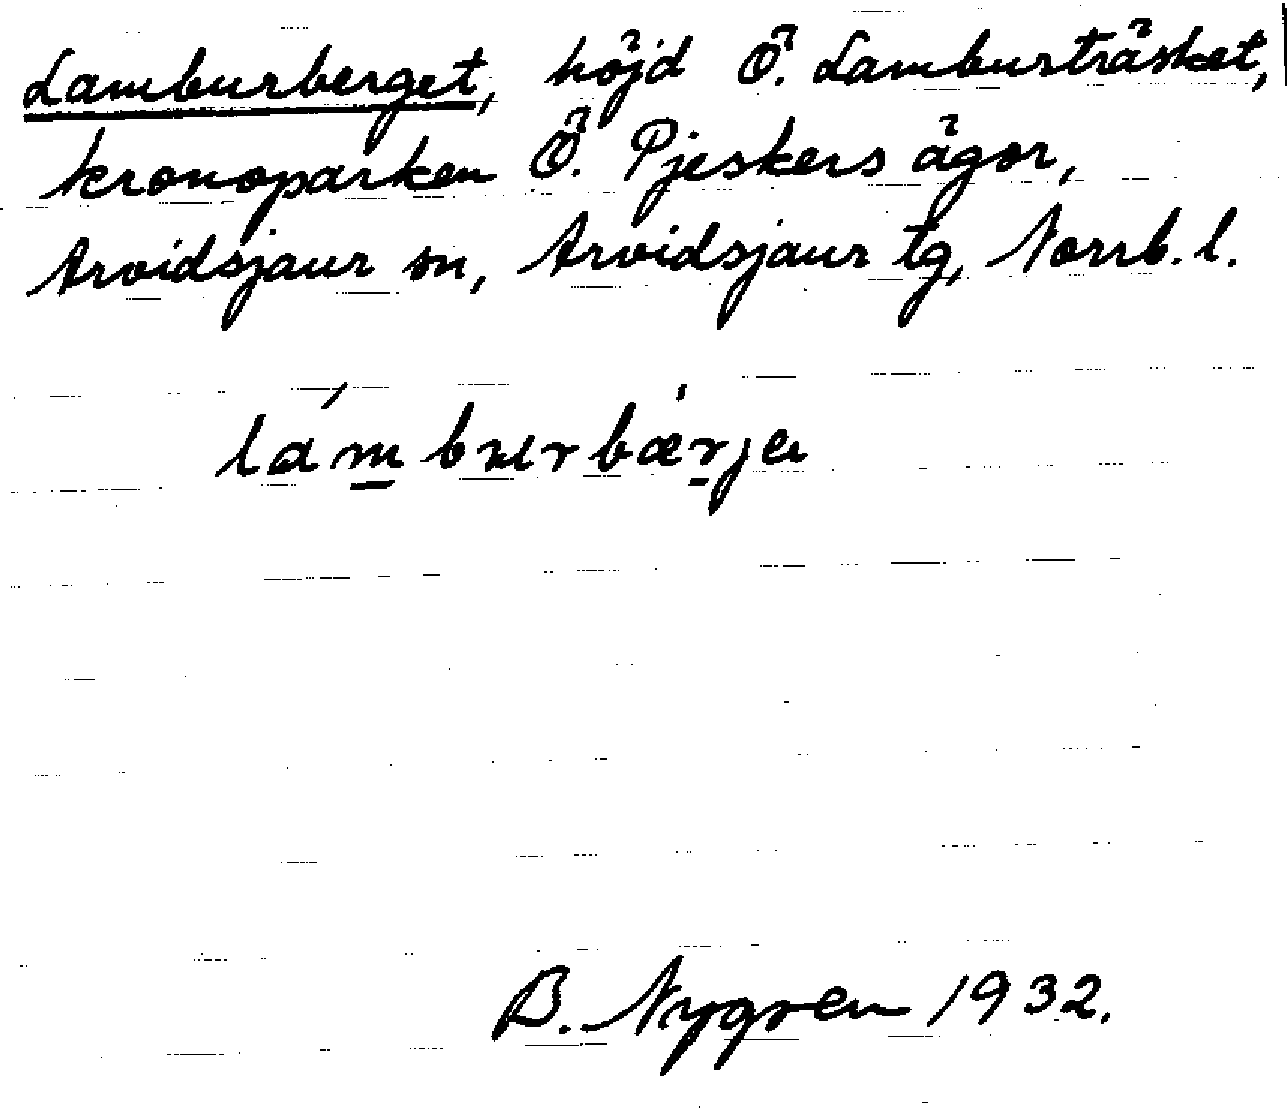 Lamburberget, höjd Ö. Lamburträsket,
kronoparken Ö. Pjeskers ägor,
Arvidsjaur sn, Arvidsjaur tg, Norrb. l.
lám̲burbær̲ja
B. Nygren 1932.